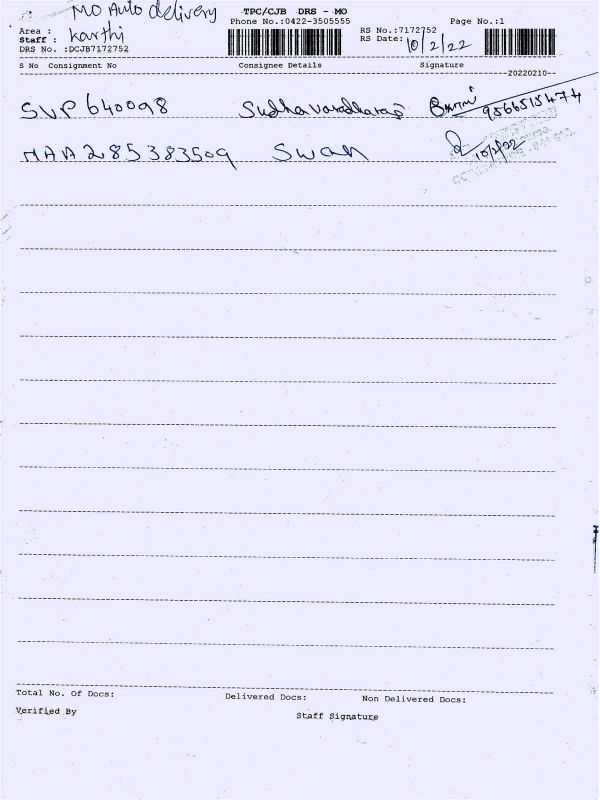 MO Auto delivery
TPC/CJB DRS - MO
Phone No.:0422-3505555
Page No.:1
Area :
Staff : Karthi
DRS No. :DCJB7172752
RS No.:7172752
RS Date: 10/2/22
S No Consignment No Consignee Details Signature
20220210
SVP 640098 Sudha varadharaj 9566515474
MAA 285383509 Swan 10/2/22
Total No. Of Docs: Delivered Docs: Non Delivered Docs:
Verified By Staff Signature